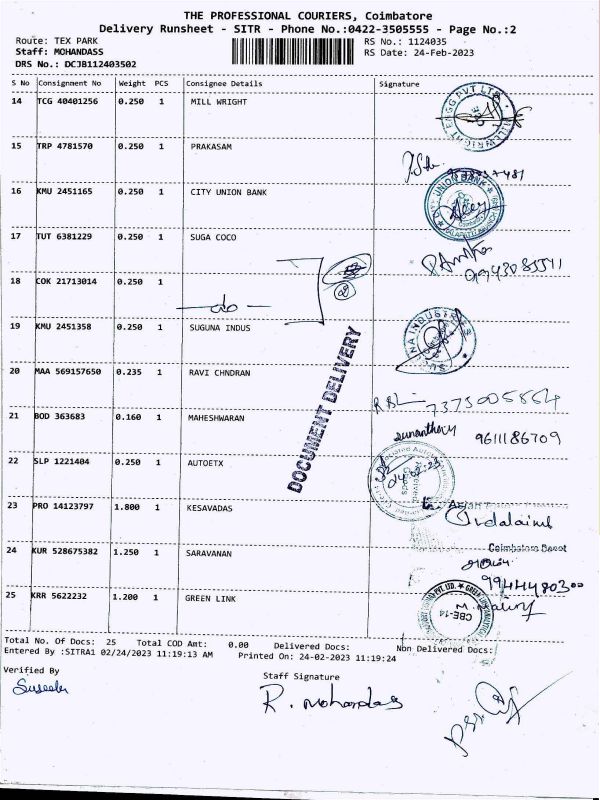 THE PROFESSIONAL COURIERS, Coimbatore
Delivery Runsheet - SITR - Phone No.:0422-3505555 - Page No.:2
Route: TEX PARK RS No.: 1124035
Staff: MOHANDASS RS Date: 24-Feb-2023
DRS No.: DCJB112403502
S No Consignment No Weight PCS Consignee Details Signature
14 TCG 40401256 0.250 1 MILL WRIGHT
15 TRP 4781570 0.250 1 PRAKASAM
16 KMU 2451165 0.250 1 CITY UNION BANK
UNION BANK
17 TUT 6381229 0.250 1 SUGA COCO
18 COK 21713014 0.250 1
do
19 KMU 2451358 0.250 1 SUGUNA INDUS
20 MAA 569157650 0.235 1 RAVI CHNDRAN
DOCUMENT DELIVERY
21 BOD 363683 0.160 1 MAHESHWARAN
9611186709
22 SLP 1221404 0.250 1 AUTOETX
23 PRO 14123797 1.800 1 KESAVADAS
24 KUR 528675382 1.250 1 SARAVANAN
Coimbatore Depot
25 KRR 5622232 1.200 1 GREEN LINK
CBE-14
Total No. Of Docs: 25 Total COD Amt: 0.00 Delivered Docs: Non Delivered Docs:
Entered By :SITRA1 02/24/2023 11:19:13 AM Printed On: 24-02-2023 11:19:24
Verified By Staff Signature
R. Mohandass